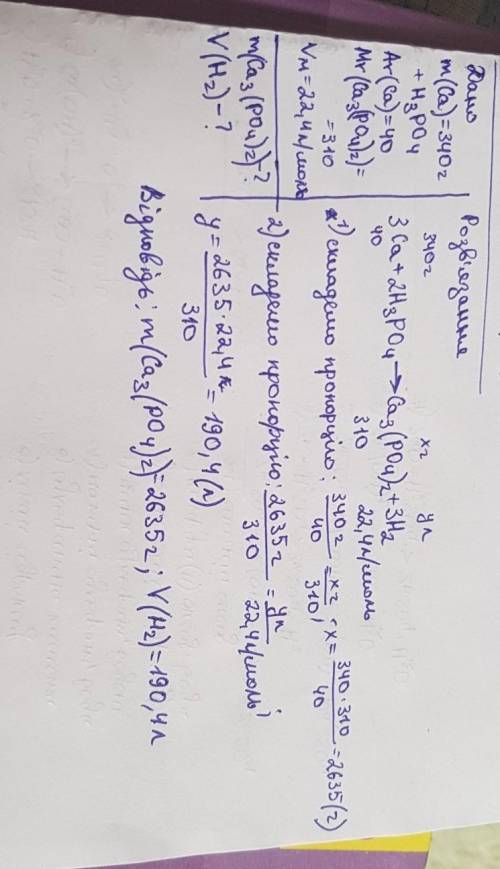 Дано
m(Ca)=340г
+ H₃PO₄
Ar(Ca)=40
Mr(Ca₃(PO₄)₂)=
=310
Vм=22,4л/моль
m(Ca₃(PO₄)₂)-?
V(H₂)-?
Розв'язання
340г xг yл
3Ca+2H₃PO₄→Ca₃(PO₄)₂+3H₂
40 310 22,4л/моль
1) складемо пропорцію: 340г/40 = xг/310, x = 340·310/40 = 2635(г)
2) складемо пропорцію: 2635г/310 = yл/22,4л/моль;
y = 2635·22,4л/310 = 190,4(л)
Відповідь: m(Ca₃(PO₄)₂)=2635г; V(H₂)=190,4л